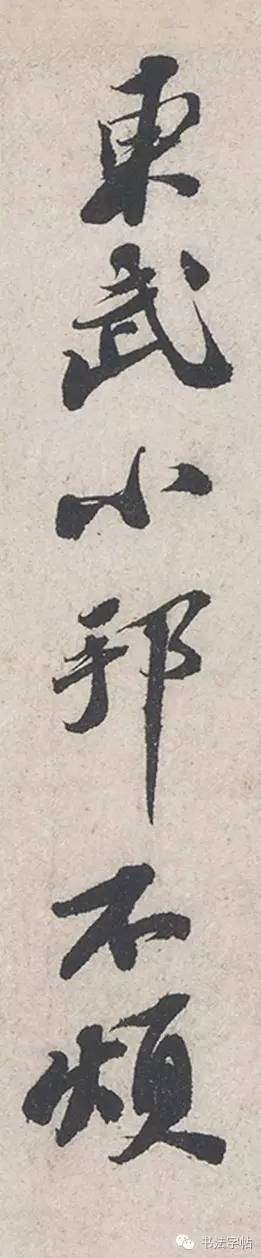 東武小邦不煩
书法字帖